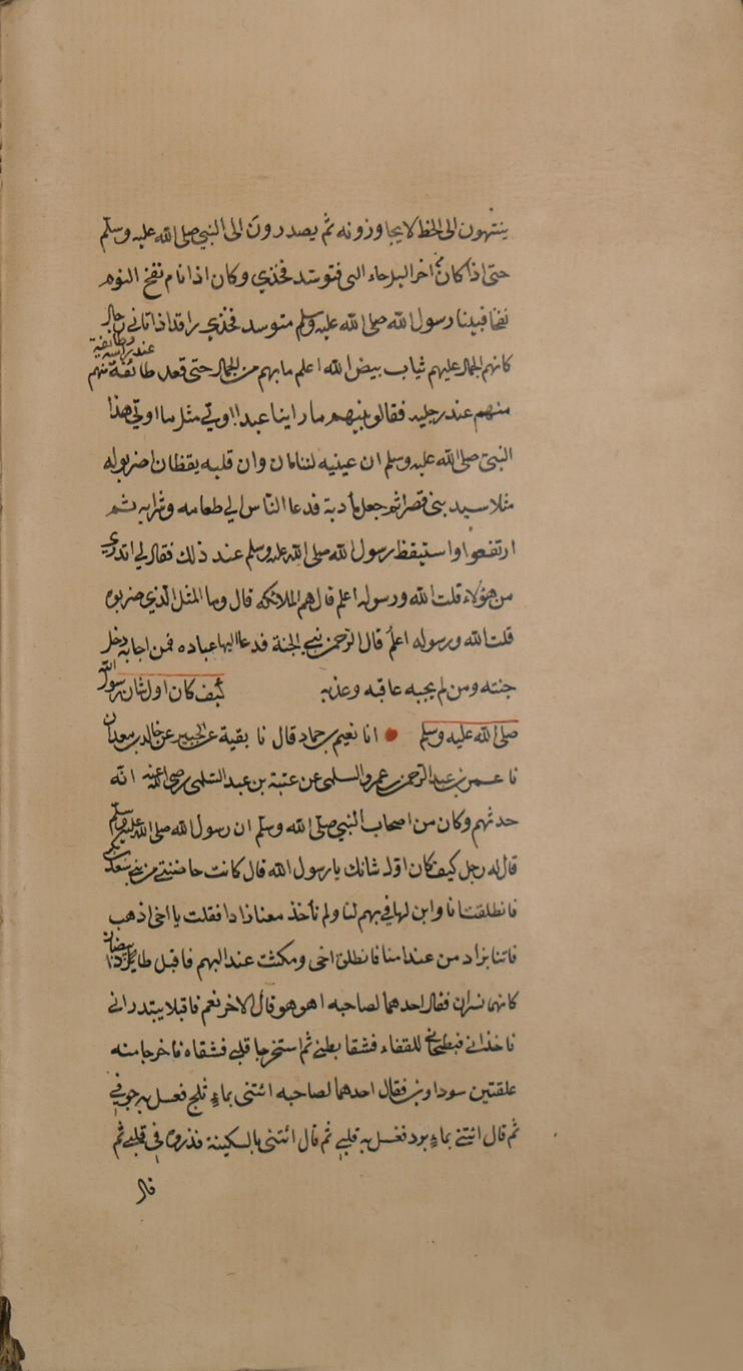 ينتهون الى الخط لا يجاوزونه ثم يصدرون الى النبي صلى الله عليه وسلم
حتى اذا كان اخر الليل جاء الى فتوسد فخذي وكان اذا نام نفخ النوم
نفخا فبينا رسول الله صلى الله عليه وسلم متوسد فخذي راقد اذ اتاني رجال
كانهم الجمال عليهم ثياب بيض الله اعلم ما بهم من الجمال حتى قعد طائفة منهم عند راسه وطائفة
منهم عند رجليه فقالوا بينهم ما راينا عبدا اوتي مثل ما اوتي هذا
النبي صلى الله عليه وسلم ان عينيه لتنامان وان قلبه يقظان اضربوا له
مثلا سيد بنى قصرا ثم جعل مأدبة فدعا الناس الى طعامه وشرابه ثم
ارتفعوا واستيقظ رسول الله صلى الله عليه وسلم عند ذلك فقال لي اتدري
من هؤلاء قلت الله ورسوله اعلم قال هم الملائكة قال وما المثل الذي ضربوه
قلت الله ورسوله اعلم قال الرحمن بنى الجنة فدعا اليها عباده فمن اجابه دخل
جنته ومن لم يجبه عاقبه وعذبه كيف كان اول شان رسول الله
صلى الله عليه وسلم انا نعيم بن حماد قال نا بقية عن بحير عن خالد بن معدان
نا عمر بن عبد الرحمن بن عمرو السلمي عن عتبة بن عبد السلمي رضي الله عنه انه
حدثهم وكان من اصحاب النبي صلى الله وسلم ان رسول الله صلى الله عليه وسلم
قال له رجل كيف كان اول شانك يا رسول الله قال كانت حاضنتي من بني سعد بن بكر
فانطلقت انا وابن لها في بهم لنا ولم نأخذ معنا زادا فقلت يا اخي اذهب
فاتنا بزاد من عند امنا فانطلق اخي ومكثت عند البهم فاقبل طائران ابيضان
كانهما نسران فقال احدهما لصاحبه اهو هو قال الاخر نعم فاقبلا يبتدراني
فاخذاني فبطحاني للقفاء فشقا بطني ثم استخرجا قلبي فشقاه فاخرجا منه
علقتين سوداوين فقال احدهما لصاحبه ائتني بماء ثلج فغسل به جوفي
ثم قال ائتني بماء برد فغسل به قلبي ثم قال ائتني بالسكينة فذره في قلبي ثم
قال